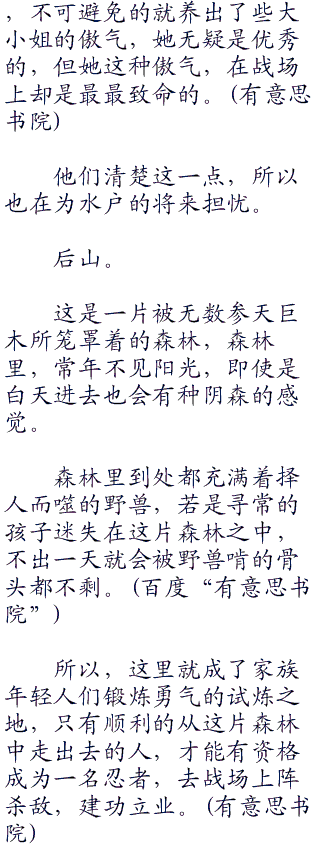 ，不可避免的就养出了些大
小姐的傲气，她无疑是优秀
的，但她这种傲气，在战场
上却是最最致命的。(有意思
书院)
他们清楚这一点，所以
也在为水户的将来担忧。
后山。
这是一片被无数参天巨
木所笼罩着的森林，森林
里，常年不见阳光，即使是
白天进去也会有种阴森的感
觉。
森林里到处都充满着择
人而噬的野兽，若是寻常的
孩子迷失在这片森林之中，
不出一天就会被野兽啃的骨
头都不剩。(百度“有意思书
院”)
所以，这里就成了家族
年轻人们锻炼勇气的试炼之
地，只有顺利的从这片森林
中走出去的人，才能有资格
成为一名忍者，去战场上阵
杀敌，建功立业。(有意思书
院)